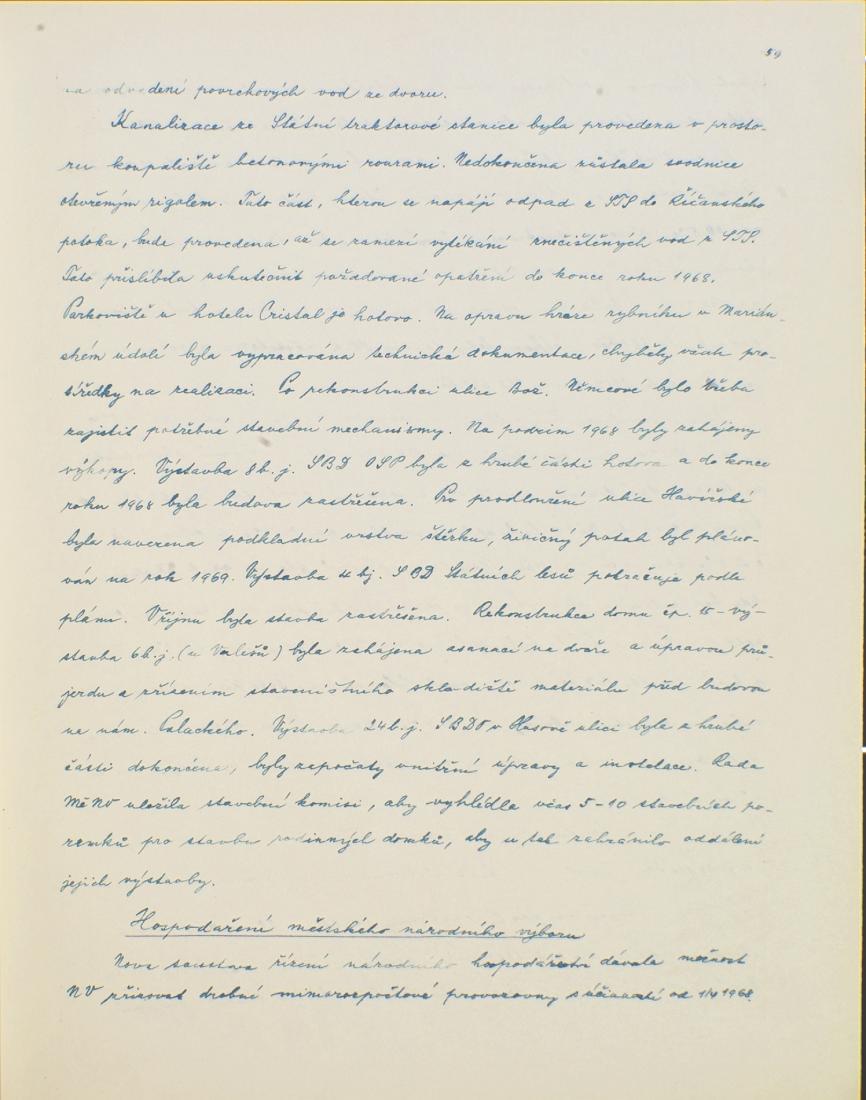 59
na odvedení povrchových vod ze dvoru.
Kanalizace ze Státní traktorové stanice byla provedena v prosto-
ru koupaliště betonovými rourami. Nedokončena zůstala svodnice
otevřeným rigolem. Tato část, kterou se napájí odpad z STS do Říčanského
potoka, bude provedena, až se zamezí vytékání znečištěných vod z STS.
Tato přislíbila uskutečnit požadované opatření do konce roku 1968.
Parkoviště u hotelu Cristal je hotovo. Na opravu hráze rybníku v Marián-
ském údolí byla vypracována technická dokumentace, chyběly však pro-
středky na realizaci. Po rekonstrukci ulice Bož. Němcové bylo třeba
zajistit potřebné stavební mechanismy. Na podzim 1968 byly zahájeny
výkopy. Výstavba 8 b. j. SBD OSP byla z hrubé části hotova a do konce
roku 1968 byla budova zastřešena. Pro prodloužení ulice Havířské
byla navezena podkladní vrstva štěrku, živičný potah byl pláno-
ván na rok 1969. Výstavba 4 bj. SBD Státních lesů pokračuje podle
plánu. V říjnu byla stavba zastřešena. Rekonstrukce domu čp. 15 - vý-
stavba 6 b. j. (u) byla zahájena asanací na dvoře a úpravou prů-
jezdu a zřízením staveništního skladiště materiálu před budovou
na nám. Palackého. Výstavba 24 b. j. SBD v Husově ulici byla z hrubé
části dokončena, byly započaty vnitřní úpravy a instalace. Rada
MěNV uložila stavební komisi, aby vyhlédla včas 5-10 stavebních po-
zemků pro stavbu rodinných domků, aby se tak zabránilo oddálení
jejich výstavby.
Hospodaření městského národního výboru
Nová soustava řízení národního hospodářství dávala možnost
NV zřizovat drobné mimorozpočtové provozovny s účinností od 1/4 1968.